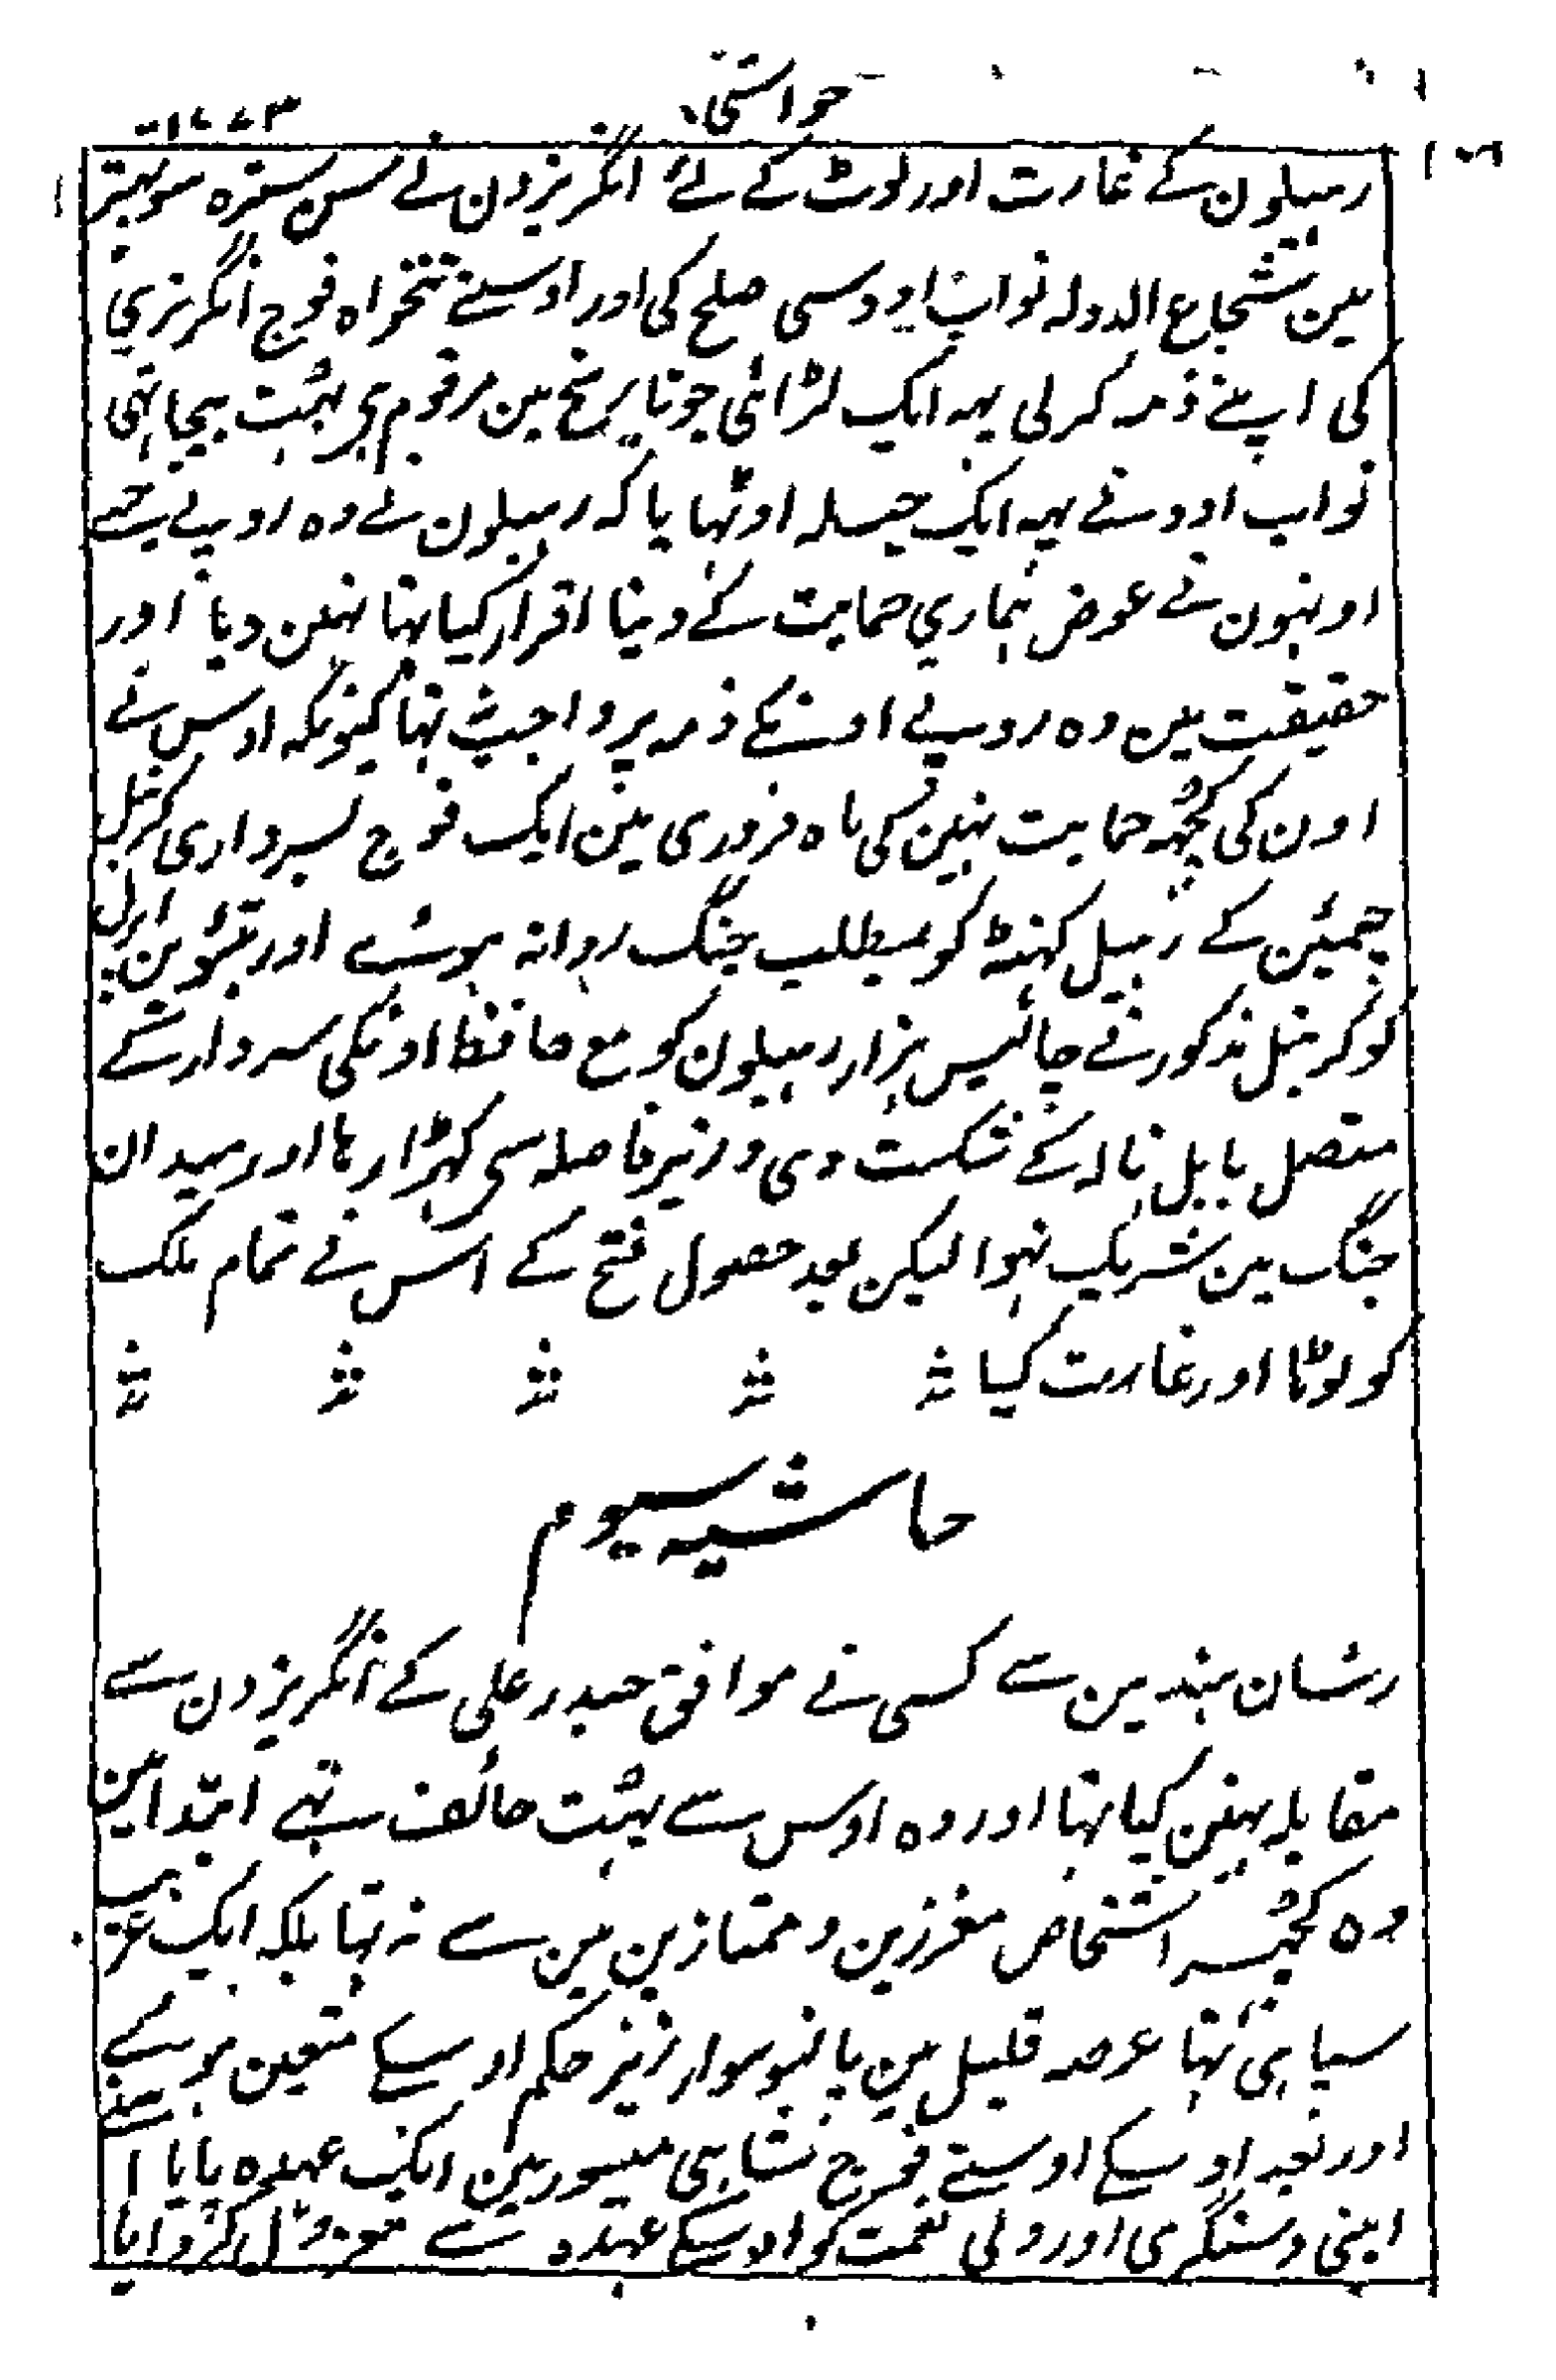 حواشی
۱۷۷۳
رہیلون کے غارت اور لوٹ کے لئے انگریزون نے سن سترہ سو تہتر
مین شجاع الدولہ نواب اودسی صلح کی اور اوسنے تنخواہ فوج انگریزی
کی اپنے ذمہ کرلی یہہ ایک لڑائی جو تاریخ مین مرقوم ہی بہت بیجا تہی
نواب اودنے یہہ ایک حیلہ اوٹہایا کہ رہیلون نے وہ روپئے جسے
اونہون نے عوض ہماری حمایت کے دینا اقرار کیا تہا نہین دیا اور
حقیقت مین وہ روپئے اونکے ذمہ پر واجب نتہا کیونکہ اوس نے
اون کی کچہہ حمایت نہین کی ماہ فروری مین ایک فوج بسرداری کرنیل
چمپئن کے رہیل کہنڈ کو بمطلب جنگ روانہ ہوئے اور تئیوین اپریل
کو کرنیل مذکور نے چالیس ہزار رہیلون کو مع حافظ اونکی سردار کے
متصل بابل نالہ کے شکست دی وزیر فاصلہ سی کہڑا رہا اور میدان
جنگ مین شریک نہوا لیکن بعد حصول فتح کے اس نے تمام ملک
کو لوٹا اور غارت کیا
حاشیہ سیوم
رئسان ہند مین سے کسی نے موافق حیدر علی کے انگریزون سے
مقابلہ نہین کیا تہا اور وہ اوس سے بہت خائف تہے ابتدا مین
وہ کچہہ اشخاص معززین و ممتازین مین سے نہ تہا بلکہ ایک غریب
سپاہی تہا عرصہ قلیل مین پانسو سوار زیر حکم اوسکے متعین ہوئے
اور بعد اوسکے اوسنے فوج شاہی میسور مین ایک عہدہ پایا اسنے
اپنی دستگری اور ولی نعمت کو اوسکے عہدہ سے معزول کروایا